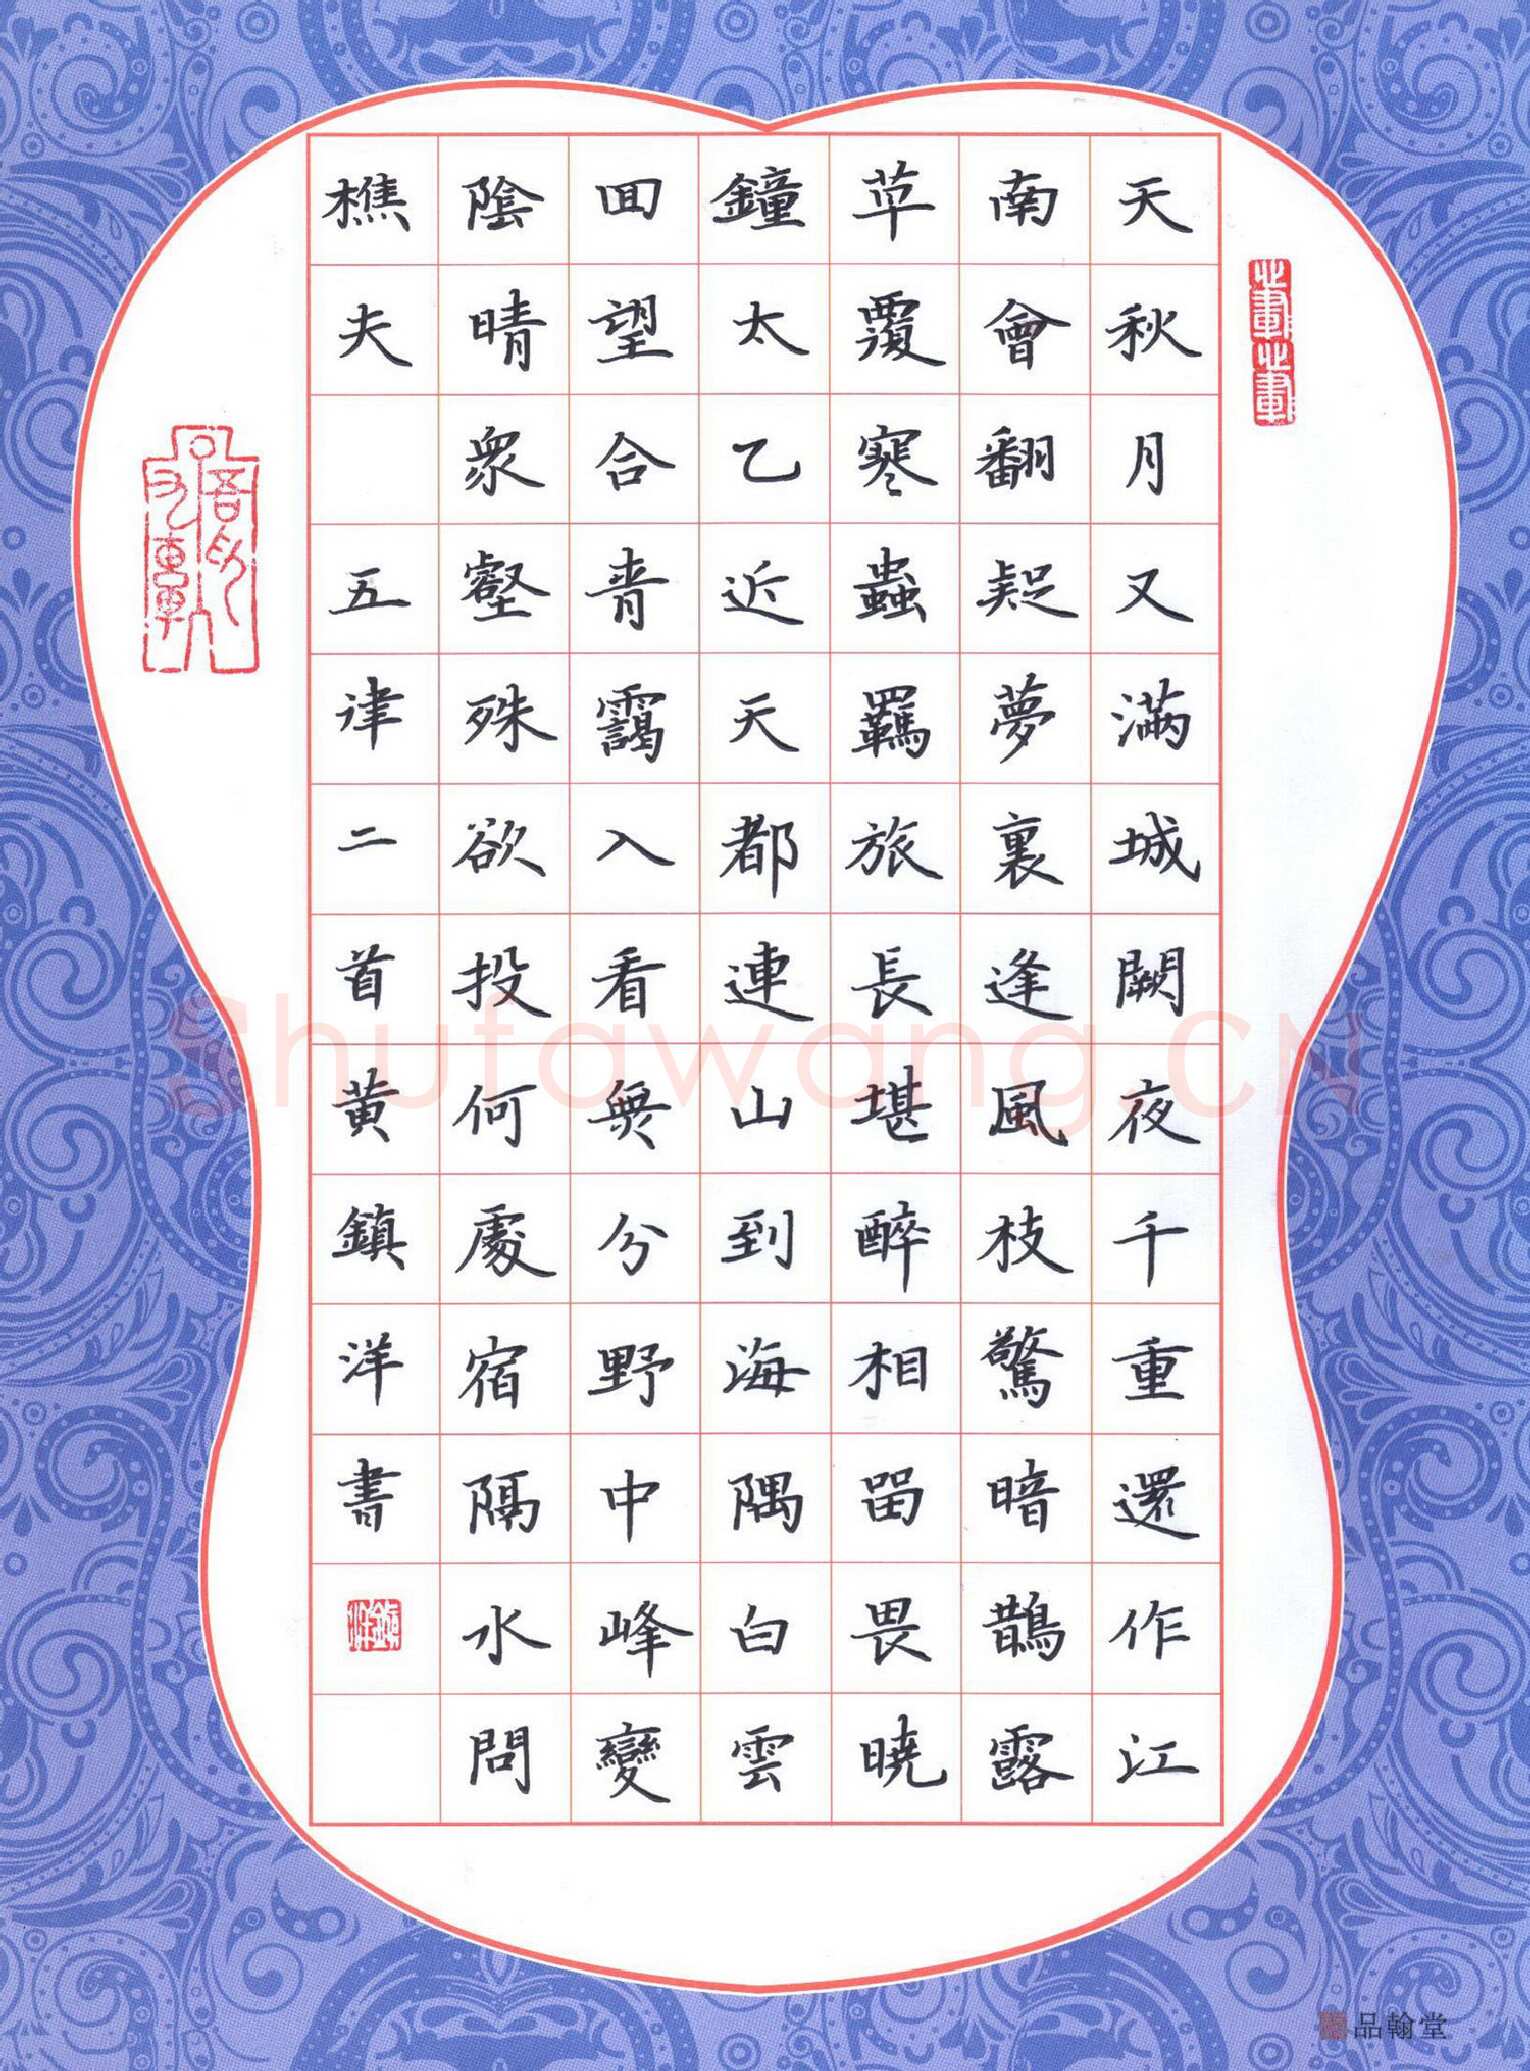 天秋月又滿城闕夜千重還作江
南會翻疑夢裏逢風枝驚暗鵲露
草覆寒蟲羈旅長堪醉相留畏曉
鐘太乙近天都連山到海隅白雲
回望合青靄入看無分野中峰變
陰晴衆壑殊欲投何處宿隔水問
樵夫 五律二首黃鎮洋書
Shufawang.CN
品翰堂